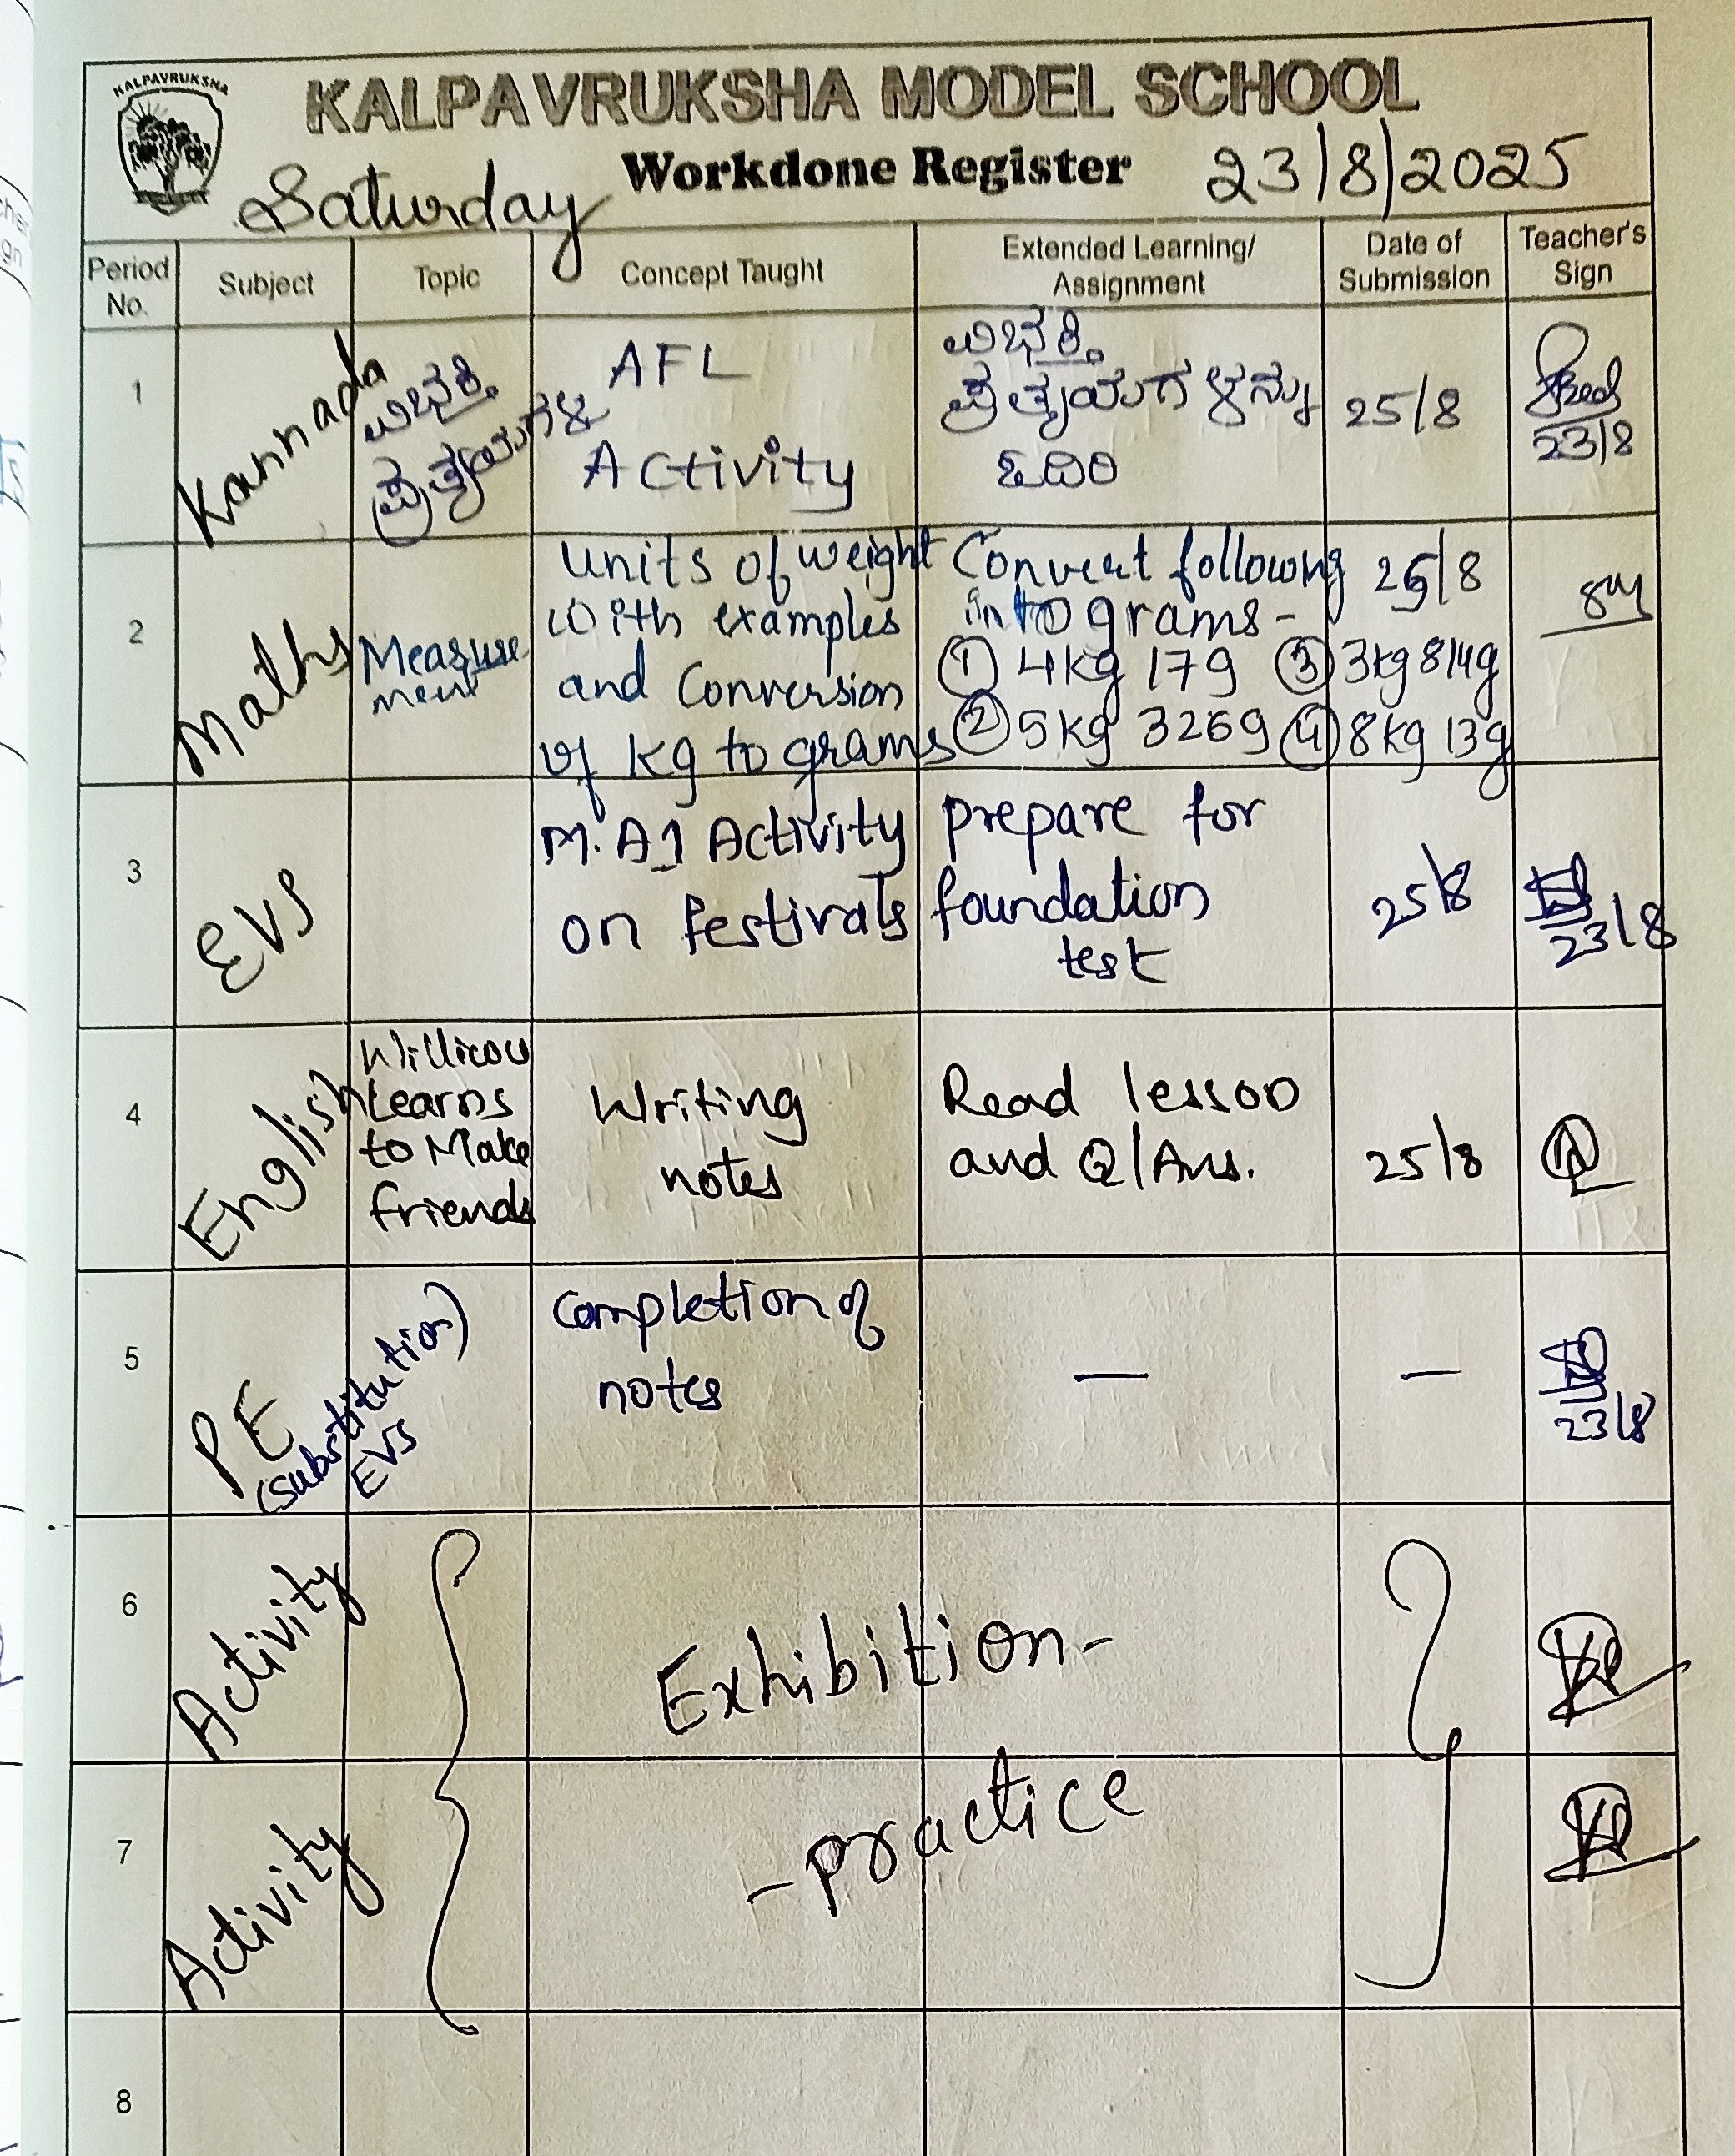 KALPAVRUKSHA
KALPAVRUKSHA MODEL SCHOOL
Workdone Register
Saturday
23/8/2025
Period No.
Subject
Topic
Concept Taught
Extended Learning/
Assignment
Date of
Submission
Teacher's
Sign
1
Kannada
ವಿಭಕ್ತಿ
ಪ್ರತ್ಯಯಗಳು
AFL
Activity
ವಿಭಕ್ತಿ
ಪ್ರತ್ಯಯಗಳನ್ನು
ಓದಿರಿ
25/8
23/8
2
Maths
Measure
ment
Units of weight
with examples
and Conversion
of kg to grams
Convert following
into grams-
① 4kg 17g ③ 3kg 814g
② 5kg 326g ④ 8kg 13g
25/8
3
EVS
M.A1 Activity
on festivals
prepare for
foundation
test
25/8
23/8
4
English
Learns
to Make
friends
Writing
notes
Read lesson
and Q/Ans.
25/8
5
PE
(substitution)
EVS
Completion of
notes
—
—
23/8
6
Activity
Exhibition-
7
Activity
-practice
8